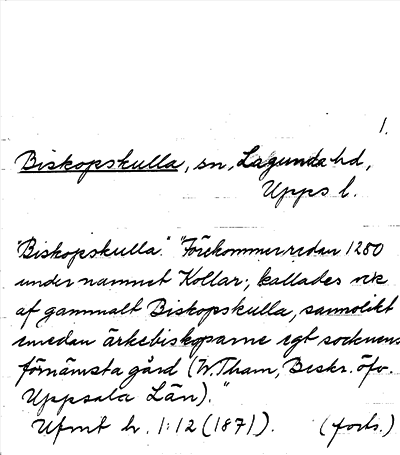 1.
Biskopskulla, sn, Lagunda hd,
Upps l.
"Biskopskulla." "Förekommer redan 1280
under namnet Kollar; kallades
af gammalt Biskopskulla, sannolikt
emedan ärkebiskoparne egt socknens
förnämsta gård (W. Tham, Beskr. öfv.
Uppsala Län)."
Ufmt h. 1:12 (1871). (forts.)